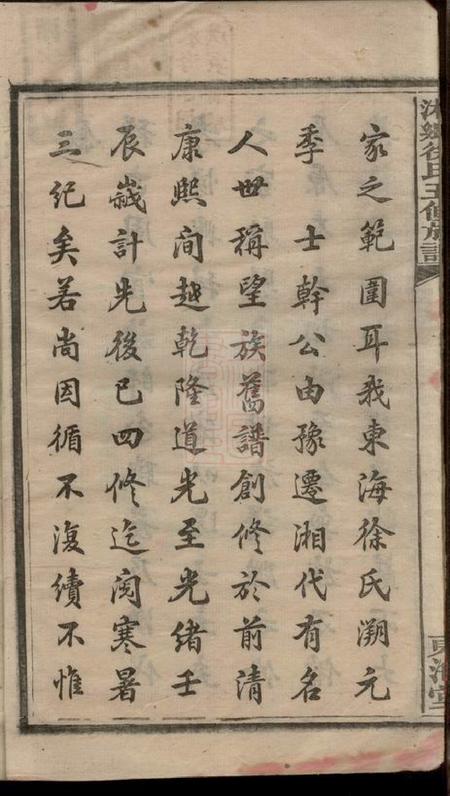 徐氏五修族譜
東海堂
家之範圍耳我東海徐氏溯元
季士幹公由豫遷湘代有名
人世稱望族舊譜創修於前清
康熙間越乾隆道光至光緒壬
辰歲計先後已四修迄閱寒暑
三紀矣若尚因循不復續不惟